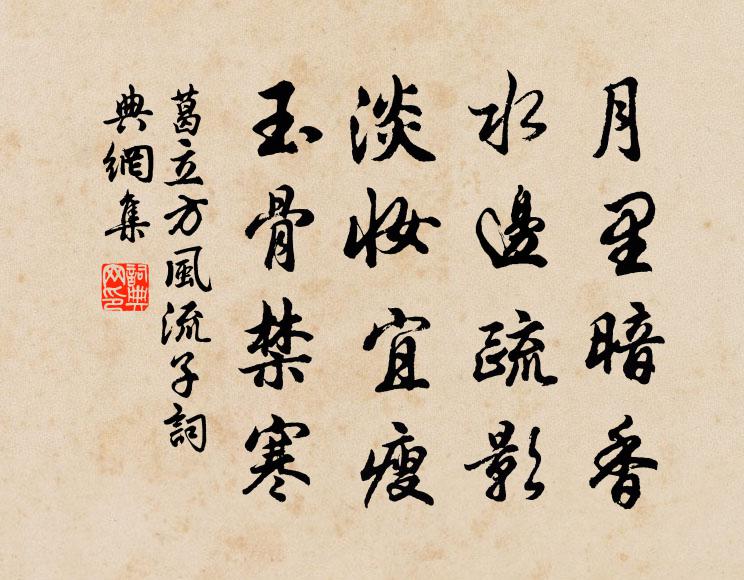 月里暗香
水邊疏影
淡妝宜瘦
玉骨禁寒
葛立方風流子詞
典網集
詞典網印